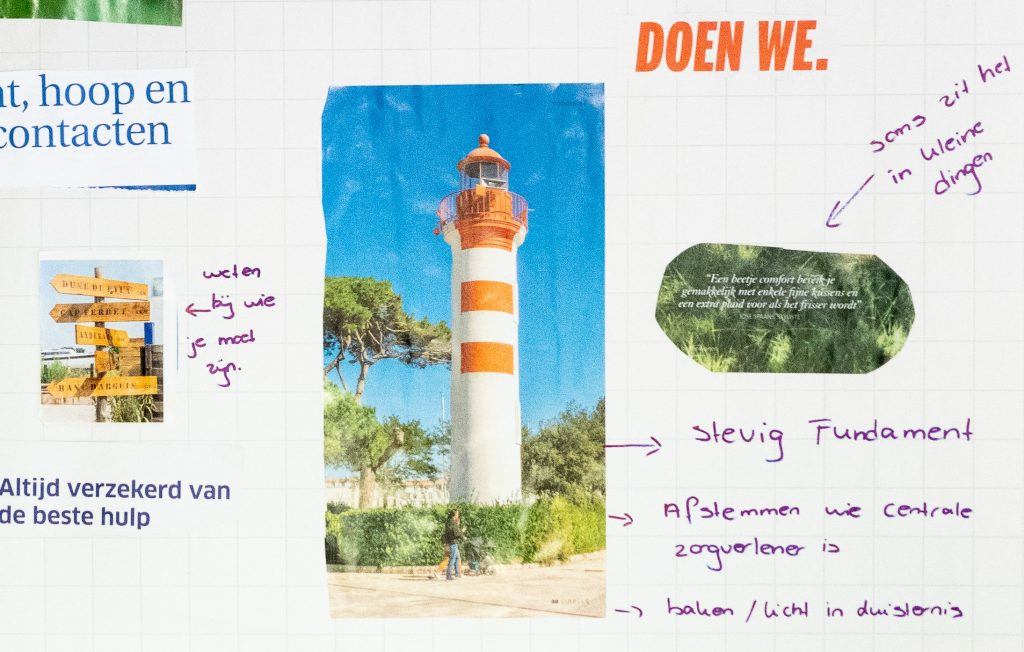 DOEN WE.
nt, hoop en
contacten
soms zit het
in kleine
dingen
weten
bij wie
je moet
zijn.
DUNE DU PYLA
CAP FERRET
BANC D'ARGUIN
"Een beetje comfort bereik je
gemakkelijk met enkele fijne kussens en
een extra plaid voor als het frisser wordt"
Altijd verzekerd van
de beste hulp
stevig Fundament
Afstemmen wie centrale
zorgverlener is
baken / licht in duisternis